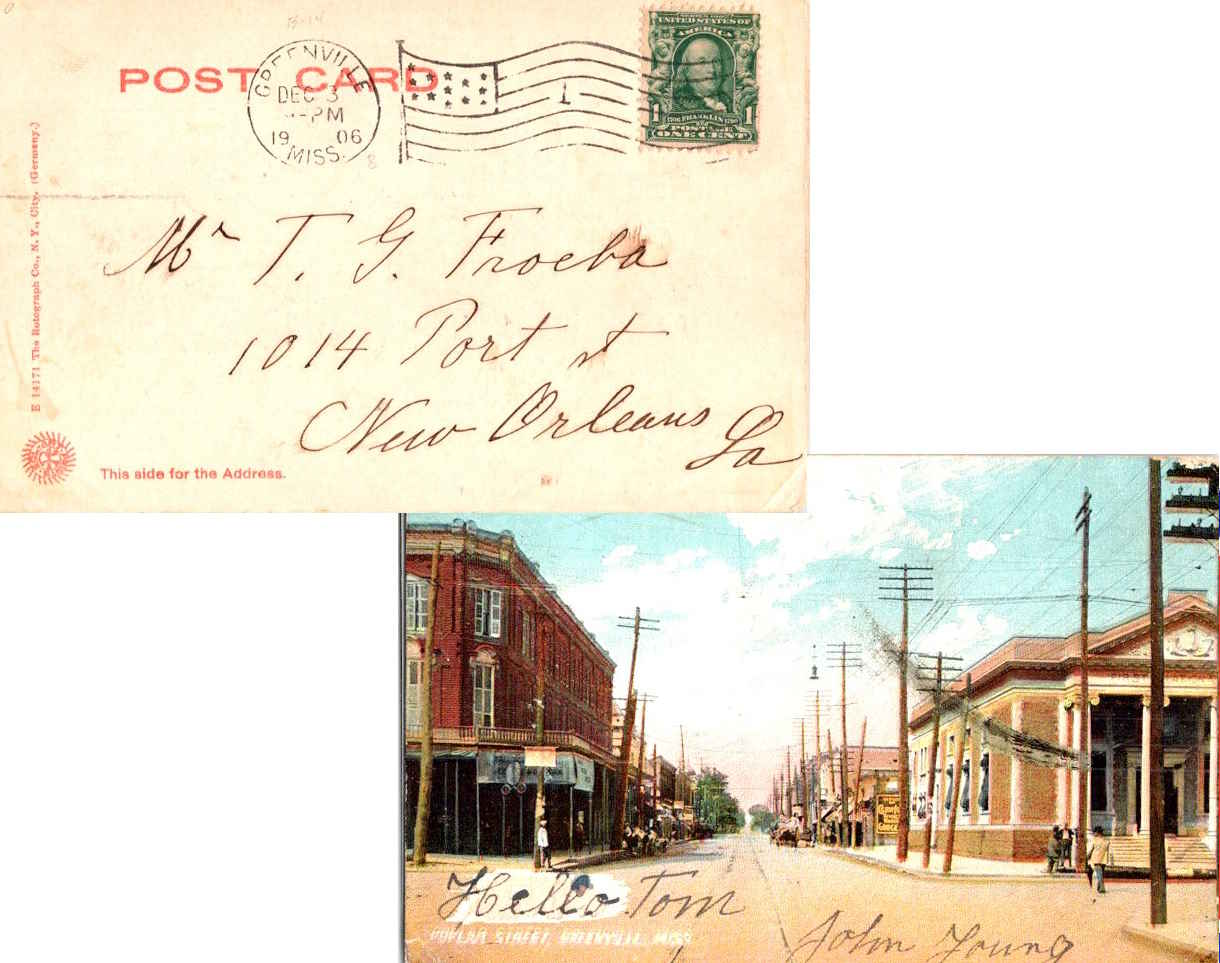 POST CARD
GREENVILLE
DEC 3
PM
1906
MISS.
1
UNITED STATES OF
AMERICA
1 1706 FRANKLIN 1790 1
POSTAGE
ONE CENT
E 14171 The Rotograph Co., N. Y., City. (Germany.)
Mr T. G. Froeba
1014 Port st
New Orleans La
This side for the Address.
Hello Tom
POPLAR STREET, GREENVILLE, MISS
John Young